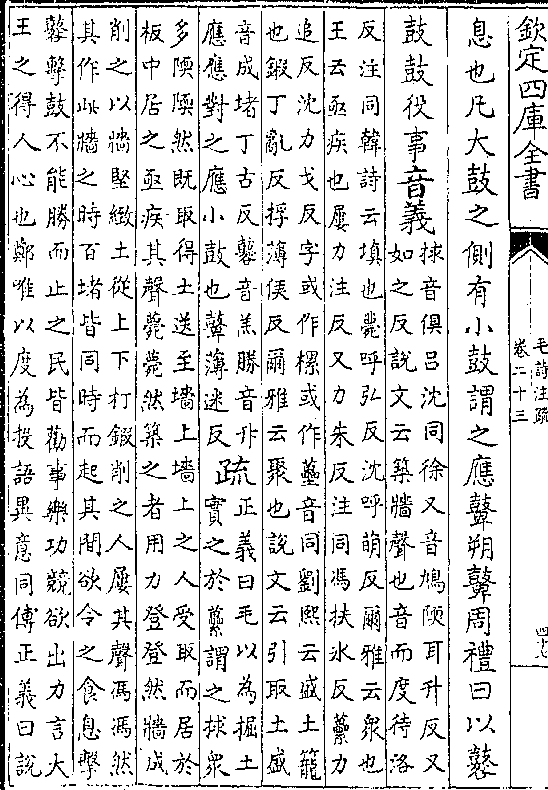 欽定四庫全書
毛詩注疏
卷二十三
四十七
息也凡大鼓之側有小鼓謂之應鼙朔鼙周禮曰以鼛
鼓鼓役事音義
捄音俱呂沈同徐又音鳩陾耳升反又
如之反說文云築牆聲也音而度待洛
反注同韓詩云填也薨呼弘反沈呼萌反爾雅云衆也
王云亟疾也屢力注反又力朱反注同馮扶氷反虆力
追反沈力戈反字或作樏或作蘲音同劉熙云盛土籠
也鍜丁亂反捊薄侯反爾雅云聚也說文云引取土盛
音成堵丁古反鼛音羔勝音升
應應對之應小鼓也鼙薄迷反
疏
正義曰毛以為掘土
實之於虆謂之捄衆
多陾陾然既取得土送至墻上墻上之人受取而居於
板中居之亟疾其聲薨薨然築之者用力登登然牆成
削之以牆堅緻土從上下打鍜削之人屢其聲馮馮然
其作此牆之時百堵皆同時而起其間欲令之食息擊
鼛擊鼓不能勝而止之民皆勸事樂功競欲出力言大
王之得人心也鄭唯以度為投語異意同傳正義曰說